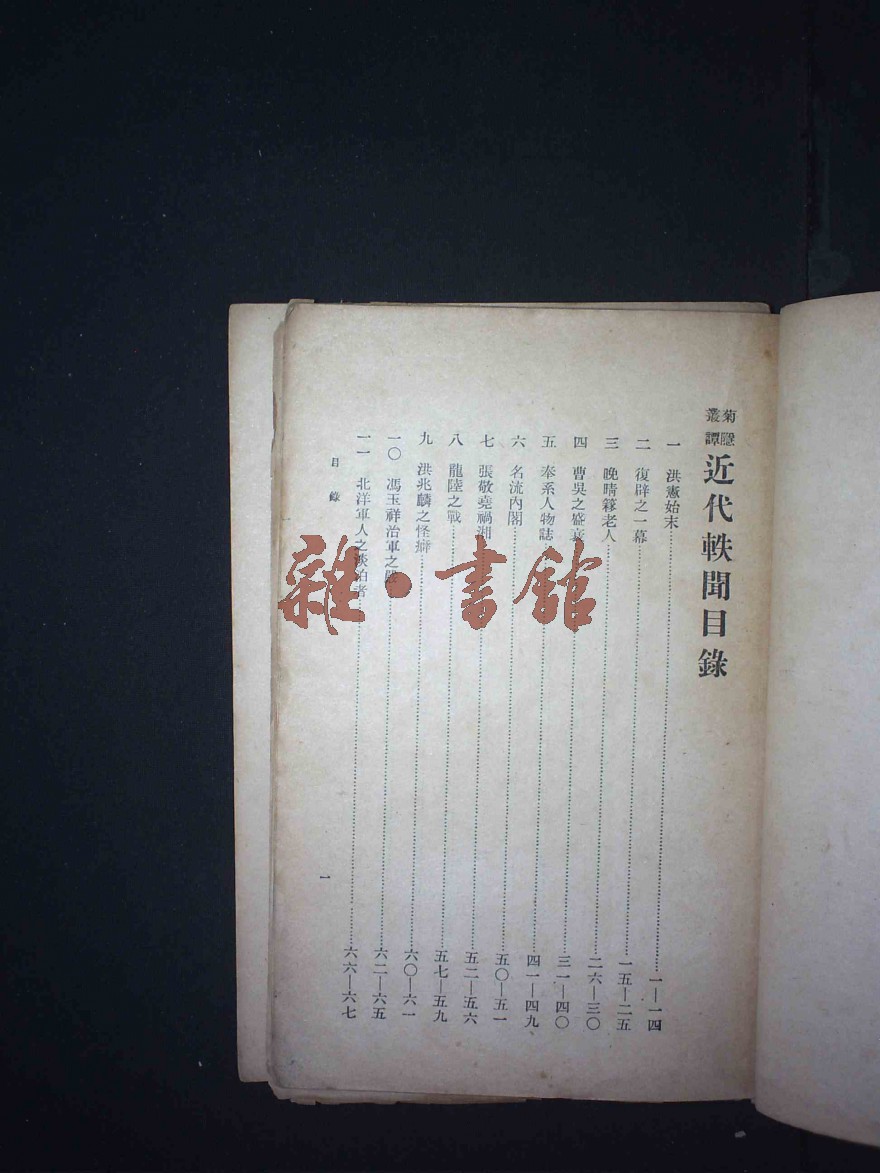 菊隱叢譚 近代軼聞目錄
一 洪憲始末……一—一四
二 復辟之一幕……一五—二五
三 晚晴簃老人……二六—三〇
四 曹吳之盛衰……三一—四〇
五 奉系人物誌……四一—四九
六 名流內閣……五〇—五一
七 張敬堯禍湘……五二—五六
八 龍陸之戰……五七—五九
九 洪兆麟之怪癖……六〇—六一
一〇 馮玉祥治軍之嚴……六二—六五
一一 北洋軍人之淡泊者……六六—六七
目錄
一
雜·書館